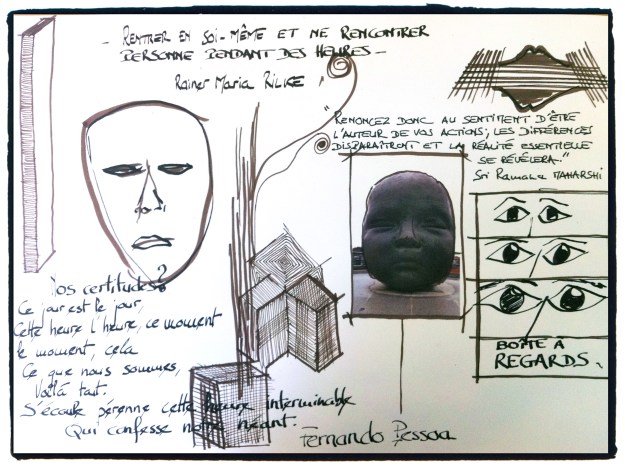 - RENTRER EN SOI-MÊME ET NE RENCONTRER
PERSONNE PENDANT DES HEURES -
Rainer Maria RILKE
"RENONCEZ DONC AU SENTIMENT D'ÊTRE
L'AUTEUR DE VOS ACTIONS; LES DIFFÉRENCES
DISPARAÎTRONT ET LA RÉALITÉ ESSENTIELLE
SE RÉVÉLERA."
Sri Ramana MAHARSHI
Nos certitudes?
Ce jour est le jour,
Cette heure l'heure, ce moment
le moment, cela
Ce que nous sommes,
Voilà tout.
S'écoule pérenne cette heure interminable
Qui confesse notre néant.
Fernando Pessoa
BOÎTE À
REGARDS.